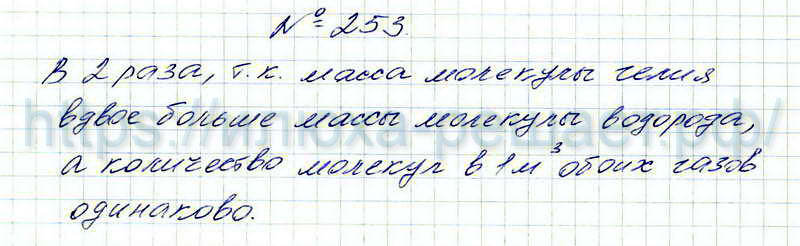 № 253.
В 2 раза, т.к. масса молекулы гелия
вдвое больше массы молекулы водорода,
а количество молекул в 1м³ обоих газов
одинаково.